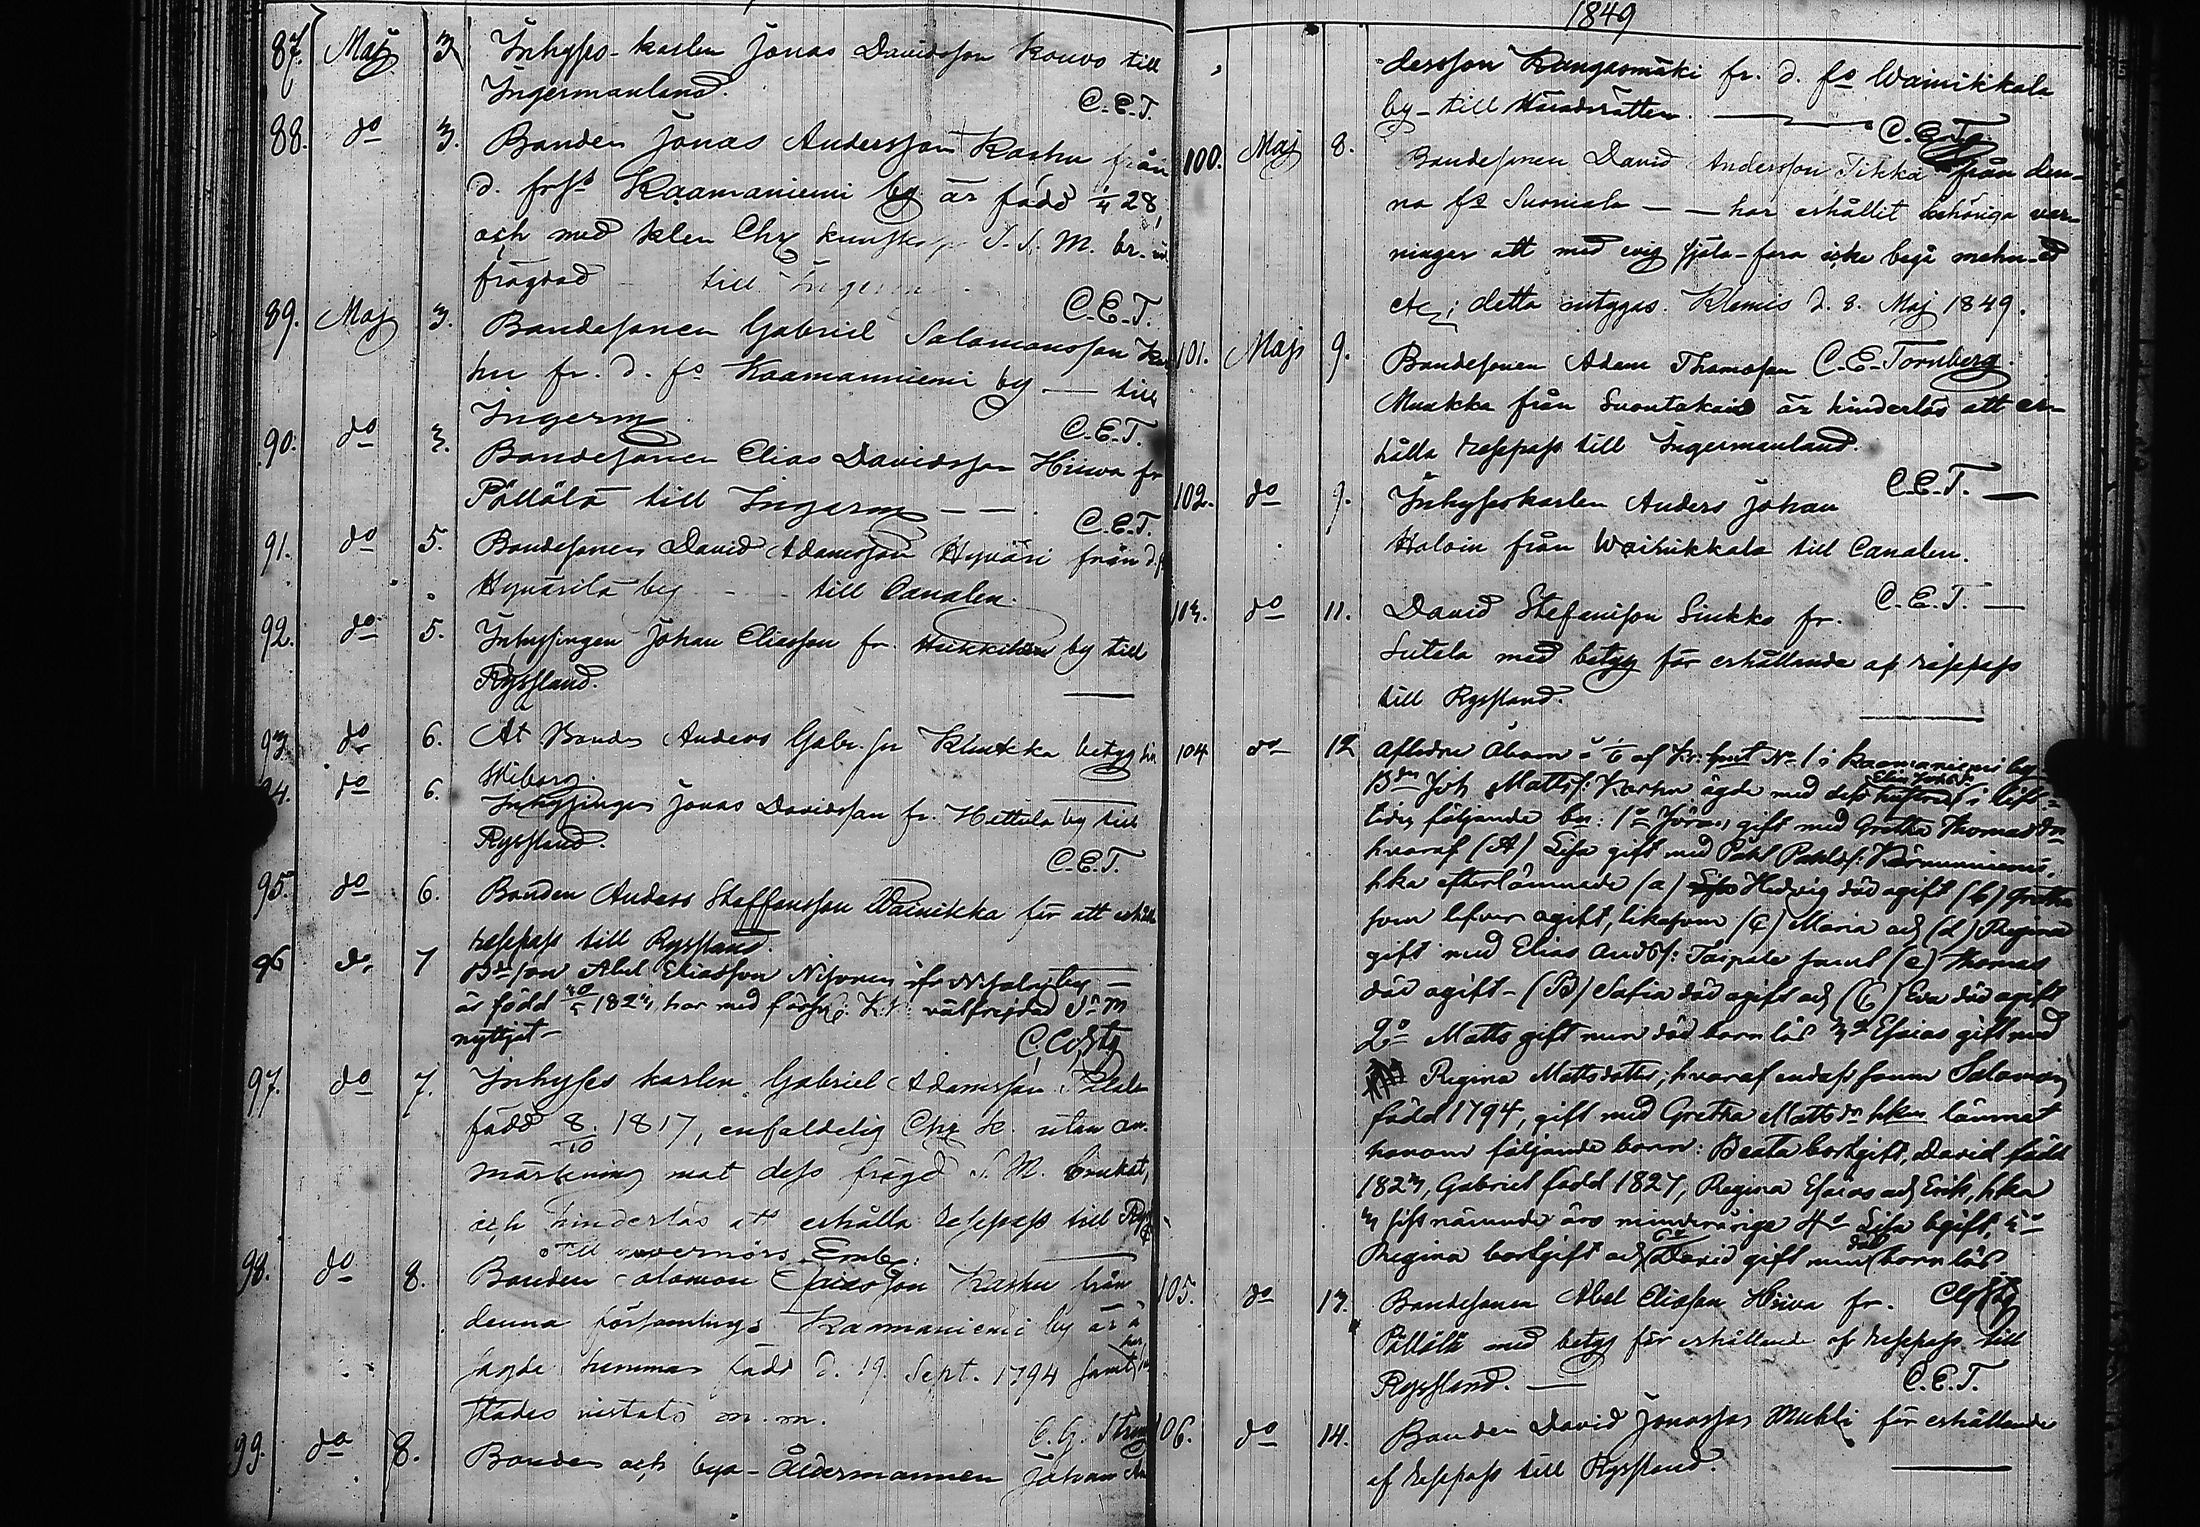 87. Maj 3 Inhyses-karlen Jonas Davidsson Kouvo till
Ingermanland.
C.E.T.
88. do 3. Bonden Jonas Andersson Karhu från
d. frst Kaamaniemi by är född 1/4 28,
och med klen Chr. kunskap S. S. M. br.
frägdad till Ingerm
C.E.T.
89. Maj 3. Bondesonen Gabriel Salomonsson Kar
hu fr. d. fs Kaamanniemi by — till
Ingerm
C.E.T.
90. do 3. Bondesonen Elias Davidsson Hirva fr
Pällälä till Ingerm — —
C.E.T.
91. do 5. Bondesonen David Adamsson Hyväri från d. f
Hyvärilä by - - till Canalen.
92. do 5. Inhysingen Johan Eliasson fr. by till
Ryssland.
93. do 6. At Bonden Anders Gabr. sn betyg
Wiborg.
94. do 6. Inhysingen Jonas Davidsson fr. Hettula by till
Ryssland.
C.E.T.
95. do 6. Bonden Anders Staffansson Wainikka för att erhålla
respass till Ryssland.
96 do 7 Bdeson Abel Eliasson fr by —
är född 1823, har med försv. K.k. välfrejdad
nyttjat —
97. do 7. Inhyses karlen Gabriel Adamsson
född 8/10 1817, enfaldelig Chr. k. utan an-
märkning mot dess frägd S. M. brukat,
och hinderlös att erhålla respass till Ryss
Till Guvernörs Emb.
98. do 8. Bonden Salomon Esaiasson Karhu från
denna församlings Kaamaniemi by är å
sagde hemman född d. 19. Sept. 1794 samt har
städes vistats m. m.
99. do 8. Bonden och bya-Åldermannen Johan An
1849
dersson Kangasmäki fr. d. fs Wainikkala
by - till Häradsrätten.
C.E.Tg
100. Maj 8. Bondesonen David Andersson Tikka från den-
na fs Suomala — — har erhållit behöriga var-
ningar att med evig själa-fara icke begå mehn-ed
etc; detta intygas. Klemis d. 8. Maj 1849.
C.E. Tornberg
101. Maj 9. Bondesonen Adam Thomasson
Muukka från är hinderlös att er-
hålla respass till Ingermanland.
C.E.T. —
102. do 9. Inhyseskarlen Anders Johan
från Wainikkala till Canalen.
C.E.T. —
103. do 11. David Stefansson Sinkko fr.
Sutela med betyg för erhållande af respass
till Ryssland.
104 do 12 Aflidne Åboen å 1/6 af Kr: hmt No 1 i Kaamaniemi by
Bdn Joh Mattss: Karhu ägde med dess hustru i lifs-
tiden följande bn: 1o Jöran, gift med Gretha Thomasdr
hvaraf (A) Lisa gift med Påhl Pahlss:
hka efterlämnade (a) Hedvig död ogift (b) Gretha
som lefver ogift, likasom (c) Maria och (d) Regina
gift med Elias Andss: Taipale samt (e) Thomas
död ogift — (B) Safia död ogift och (C) Eva död ogift
2o Matts gift men död barnlös 3o Esaias gift med
Regina Mattsdotter; hvaraf endast sonen Salomon
född 1794, gift med Gretha Mattsdr hken lämnat
honom följande barn: Beata bortgift, David född
1823, Gabriel född 1827, Regina Esaias och Erik, hka
3 sistnämnde äro minderåriga 4o Lisa bgift, 5o
Regina bortgift och 6o David gift men död barnlös
105. do 13. Bondesonen Abel Eliasson Hirva fr.
Pällälä med betyg för erhållande af respass till
Ryssland. —
C.E.T.
106. do 14. Bonden David Jonasson Mukli för erhållande
af respass till Ryssland.